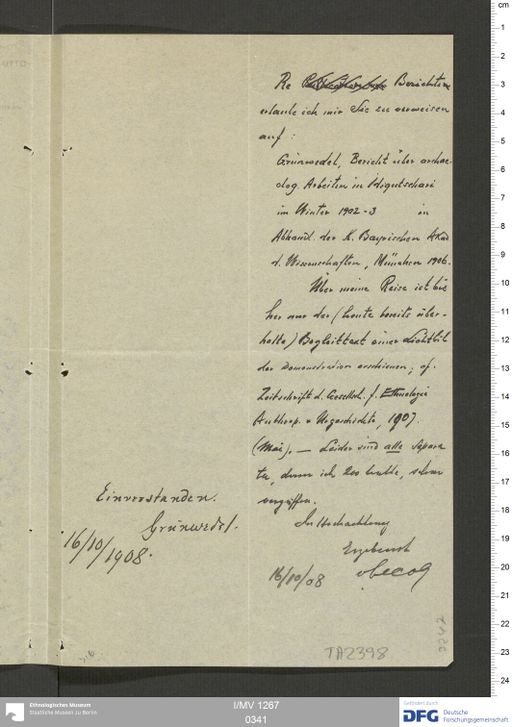 Re Berichten
erlaube ich mir Sie zu verweisen
auf:
Grünwedel, Bericht über archæ-
olog. Arbeiten in Idigutschari
im Winter 1902-3 in
Abhandl. der K. Bayrischen Akad
d. Wissenschaften, München 1906.
Über meine Reise ist bis
her nur der (heute bereits über-
holte) Begleittext einer Lichtbil
der Demonstration erschienen; cf.
Zeitschrift d. Gesellsch. f. Ethnologie
Anthrop. u Urgeschichte, 1907.
(Mai). — Leider sind alle Separa
ta, deren ich 200 hatte, schon
vergriffen.
In Hochachtung
Ergebenst
vLecoq
16/10/08
Einverstanden.
Grünwedel.
16/10/1908.
TA2398
cm
1
2
3
4
5
6
7
8
9
10
11
12
13
14
15
16
17
18
19
20
21
22
23
24
Ethnologisches Museum
Staatliche Museen zu Berlin
I/MV 1267
0341
Gefördert durch
DFG Deutsche
Forschungsgemeinschaft